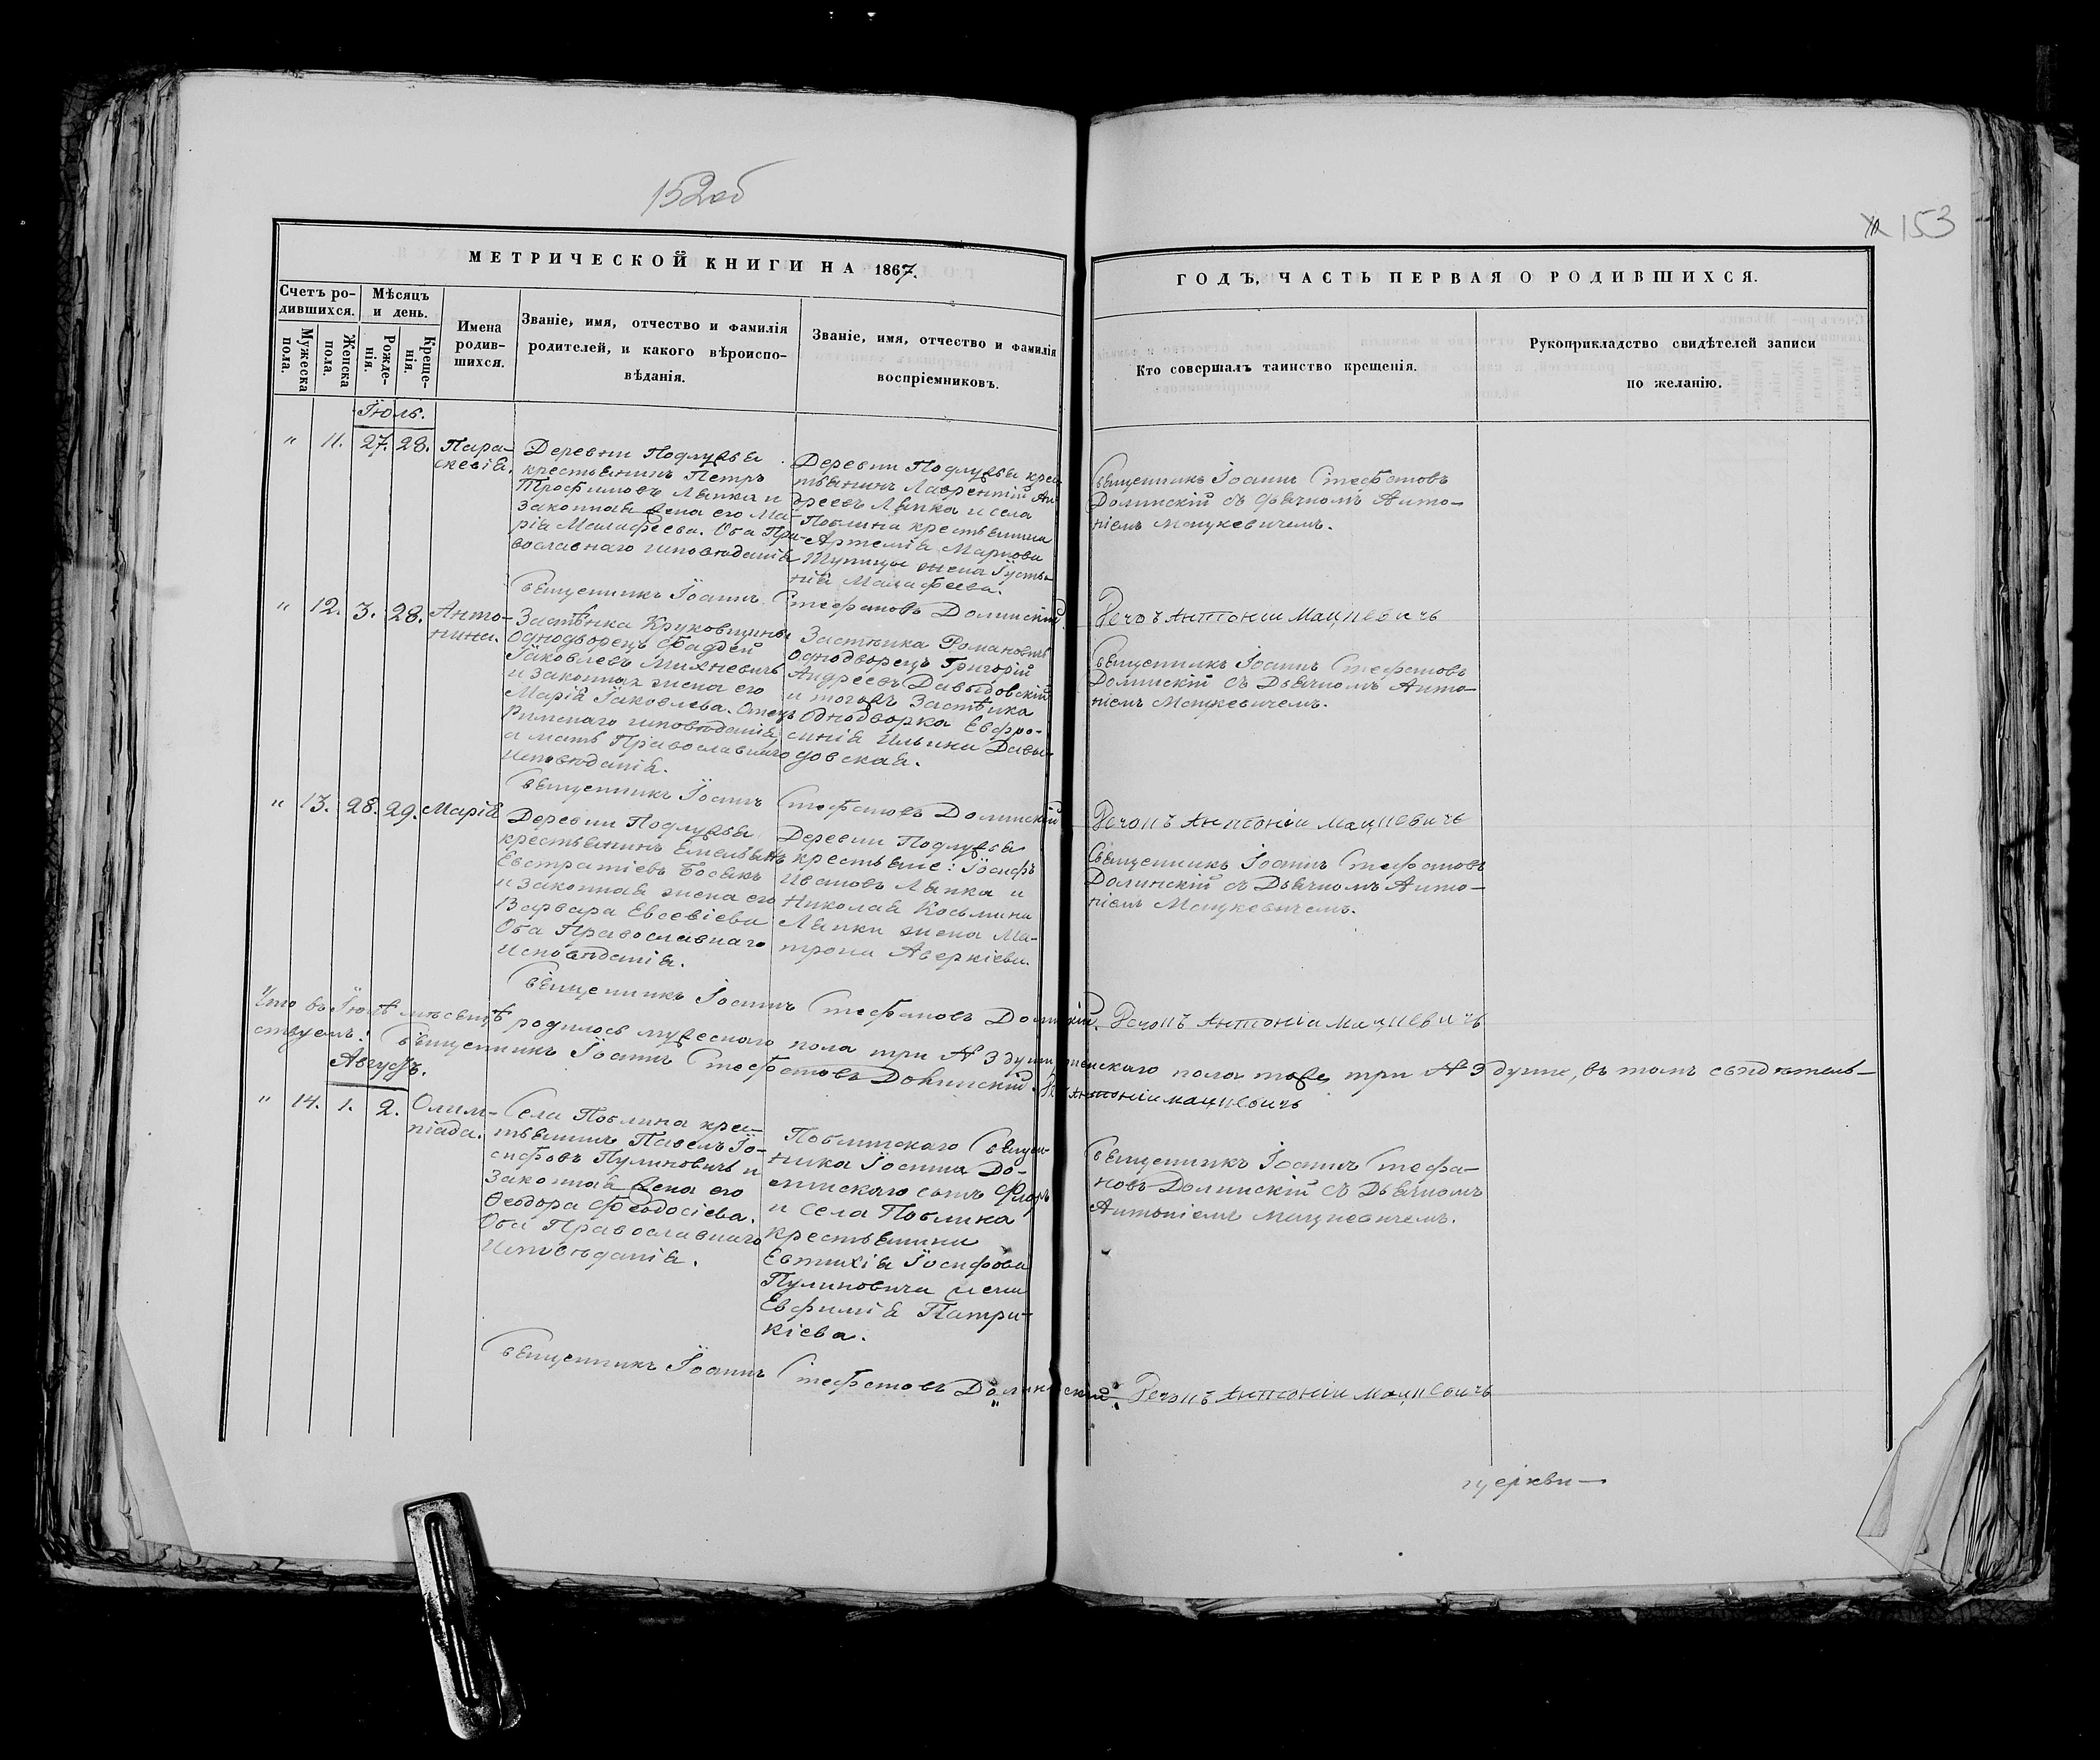 152об
153
МЕТРИЧЕСКОЙ КНИГИ НА 1867.
Счетъ ро-
дившихся.
Мужеска
пола.
Женска
пола.
Мѣсяцъ
и день.
Рожде-
нія.
Креще-
нія.
Имена
родив-
шихся.
Званіе, имя, отчество и фамилія
родителей, и какого вѣроиспо-
вѣданія.
Званіе, имя, отчество и фамилія
воспріемниковъ.
ГОДЪ, ЧАСТЬ ПЕРВАЯ О РОДИВШИХСЯ.
Кто совершалъ таинство крещенія.
Рукоприкладство свидѣтелей записи
по желанію.
Іюль.
" 11. 27. 28.
Пара-
скевія.
Деревни Подлужья
крестьянинъ Петръ
Трофимовъ Ляпка и
законная жена его Ма-
рія Малафеева. Оба Пра-
вославнаго исповѣданія
Деревни Подлужья крес
тьянинъ Лаврентій Ан-
дреевъ Ляпка и села
Поблина крестьянина
Артемія Маркова
жена Іустн-
нія Малафеева.
Священникъ Іоаннъ Стефановъ
Долинскій съ дьячкомъ Анто-
ніемъ Мацкевичемъ.
Священникъ Іоаннъ Стефановъ Долинскій.
Антоніи Мацкевичъ
" 12. 3. 28.
Анто-
нина.
Застѣнка Круковщины
Однодворецъ Фаддей
Іаковлевъ Михневичъ
и законная жена его
Марія Іаковлева. Отецъ
Римскаго исповѣданія
а мать Православнаго
исповѣданія.
Застѣнка Романовичъ
Однодворецъ Григорій
Андреевъ Давыдовскій
и тогожъ Застѣнка
Однодворка Евфро-
синія Ильина Давы-
довская.
Священникъ Іоаннъ Стефановъ
Долинскій съ Дьячкомъ Анто-
ніемъ Мацкевичемъ.
Священникъ Іоаннъ Стефановъ Долинскій
Антоніи Мацкевичъ
" 13. 28. 29.
Марія
Деревни Подлужья
крестьянинъ Емельянъ
Евстратіевъ Босякъ
и законная жена его
Варвара Евсевіева
Оба Православнаго
исповѣданія.
Деревни Подлужья
крестьяне: Іосифъ
Ивановъ Ляпка и
Николая Косьмина
Ляпки жена Ма-
трона Аверкіева.
Священникъ Іоаннъ Стефановъ
Долинскій съ Дьячкомъ Анто-
ніемъ Мацкевичемъ.
Священникъ Іоаннъ Стефановъ Долинскій.
Антоніи Мацкевичъ
Что въ Іюлѣ мѣсяцѣ родилось мужескаго пола три № 3 души женскаго пола тоже три № 3 души, въ томъ свидѣтель-
ствуемъ: Священникъ Іоаннъ Стефановъ Долинскій Антоніи Мацкевичъ
Августъ.
" 14. 1. 2.
Олим-
піада.
Села Поблина крес-
тьянинъ Павелъ Іо-
сифовъ Пулиновичъ и
законная жена его
Ѳеодора Феодосіева.
Оба Православнаго
исповѣданія.
Поблинскаго Священ-
ника Іоанна До-
линскаго сынъ
и села Поблина
крестьянина
Евтихія Іосифова
Пулиновича жена
Евфимія Патри-
кіева.
Священникъ Іоаннъ Стефа-
новъ Долинскій съ Дьячкомъ
Антоніемъ Мацкевичемъ.
Священникъ Іоаннъ Стефановъ Долинскій.
Антоніи Мацкевичъ
церкви